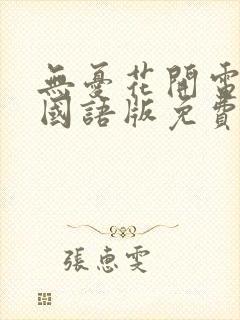 無憂花開電
國語版免費
張惠雯